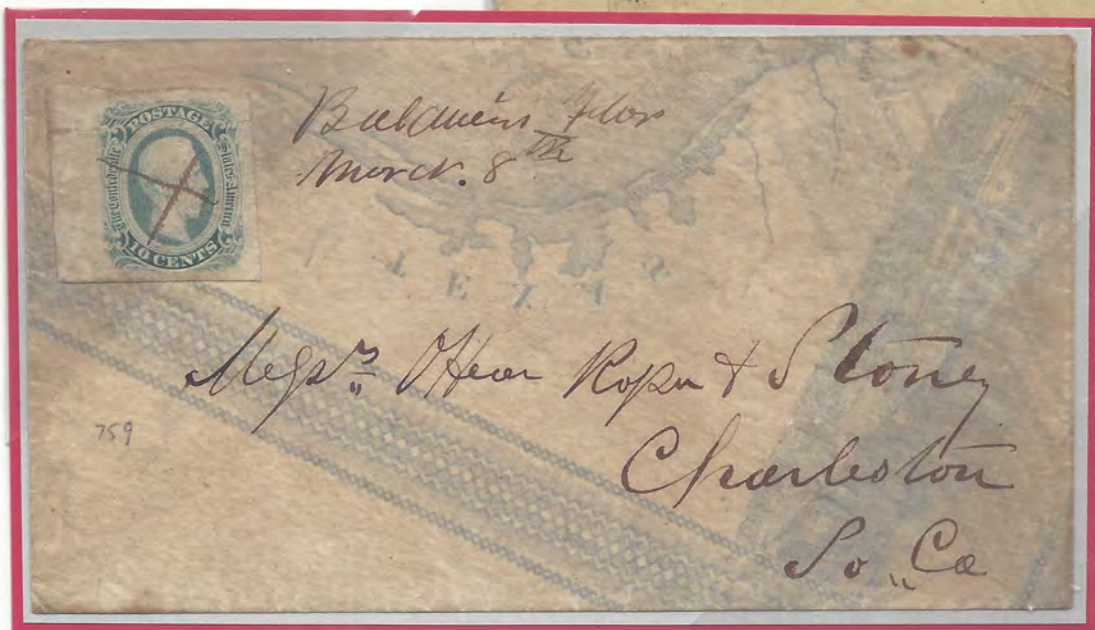 POSTAGE
The Confederate States America
10 CENTS
Baldwin Flor
March 8th
TEXAS
Messrs O'Hear Roper & Stoney
Charleston
So. Ca
759